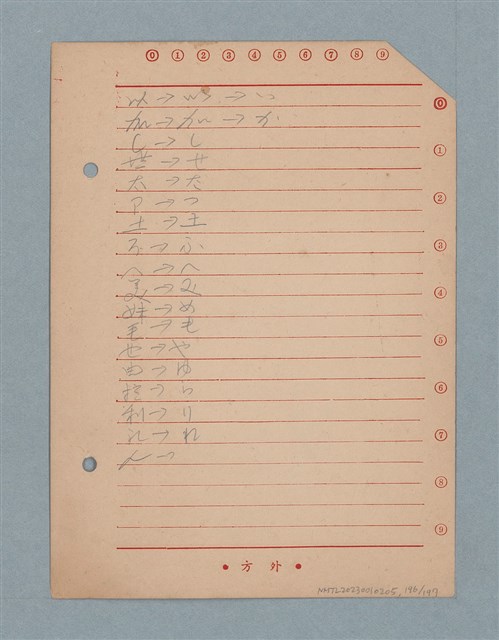 ⓪ ① ② ③ ④ ⑤ ⑥ ⑦ ⑧ ⑨
以 → い
加 → 加 → か
し → し
世 → せ
太 → た
→ つ
土 → 土
不 → ふ
へ → へ
美 → み
妹 → め
毛 → も
也 → や
由 → ゆ
→ ら
利 → り
礼 → れ
ん →
⓪
①
②
③
④
⑤
⑥
⑦
⑧
⑨
● 方 外 ●
NMTL20230010205, 196/197